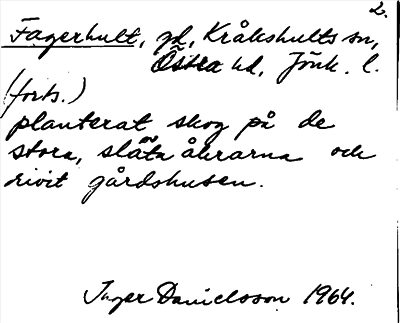 2.
Fagerhult, gd, Kråkshults sn,
Östra hd, Jönk. l.
(forts.)
planterat skog på de
stora, släta åkrarna och
rivit gårdshusen.
Inger Danielsson 1964.